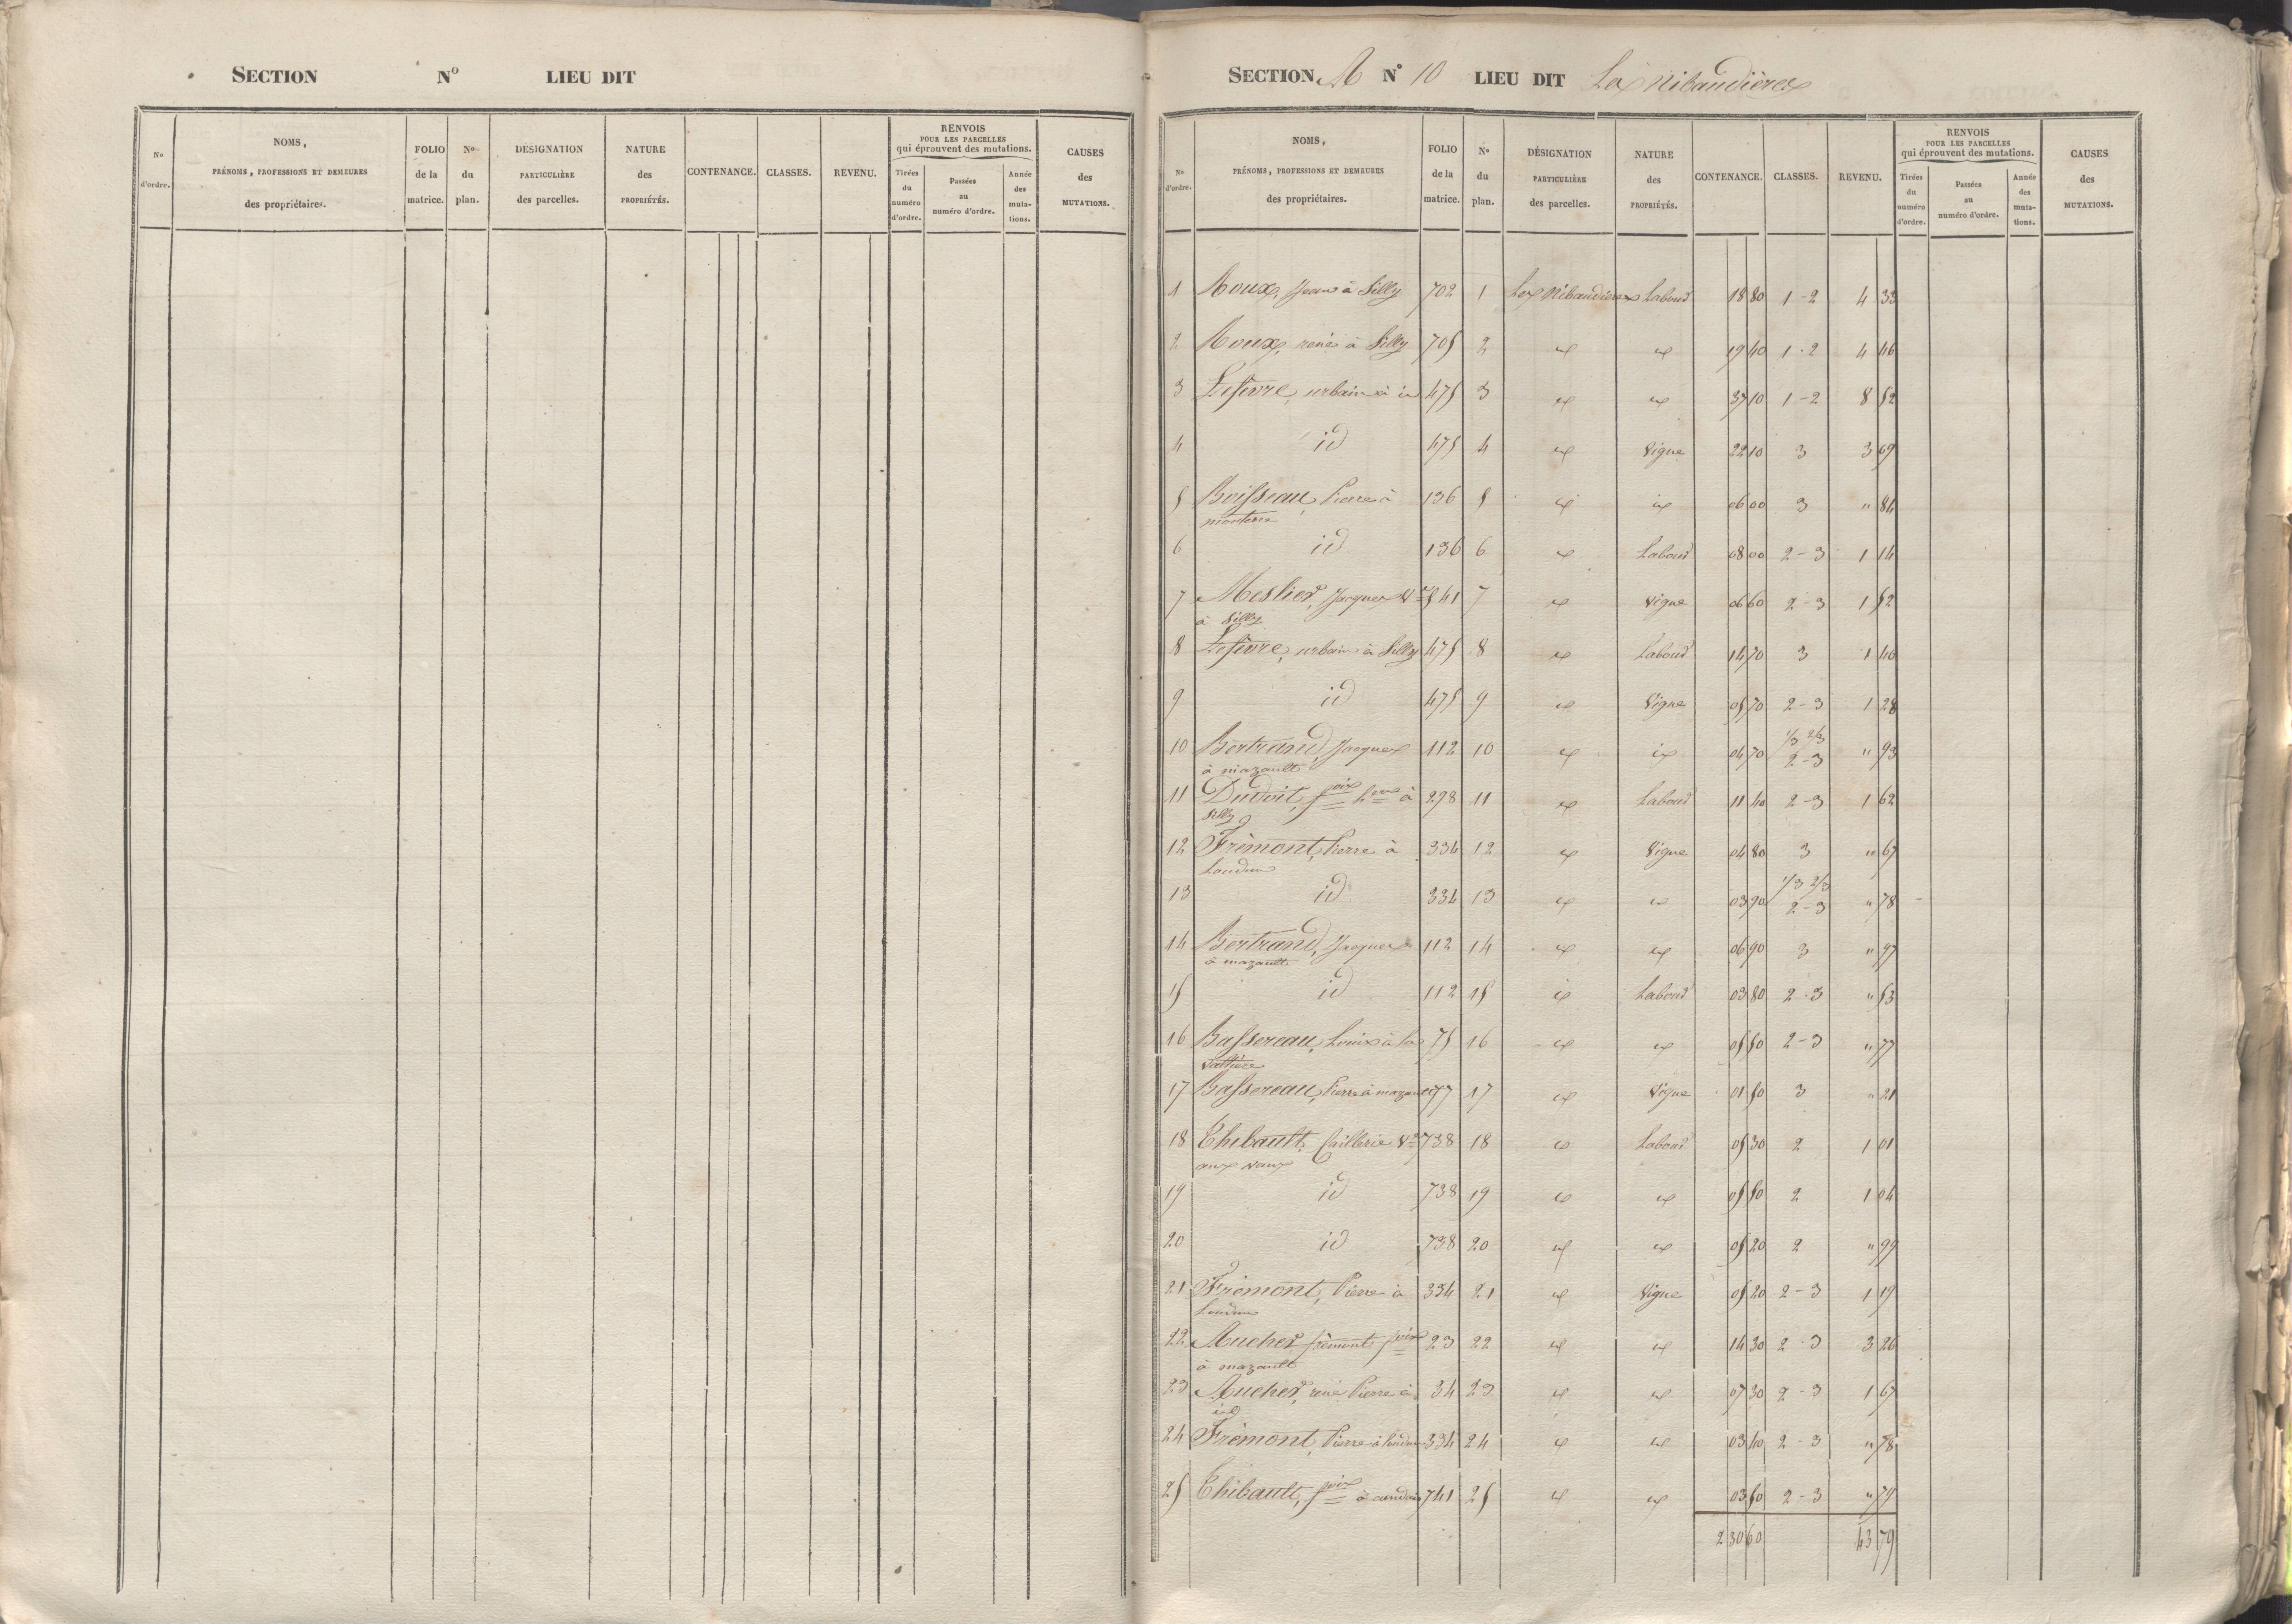 SECTION N° LIEU DIT
N° d'ordre.
NOMS, PRÉNOMS, PROFESSIONS ET DEMEURES des propriétaires.
FOLIO de la matrice.
N° du plan.
DÉSIGNATION PARTICULIÈRE des parcelles.
NATURE des PROPRIÉTÉS.
CONTENANCE.
CLASSES.
REVENU.
RENVOIS POUR LES PARCELLES qui éprouvent des mutations.
Tirées du numéro d'ordre.
Passées au numéro d'ordre.
Année des mutations.
CAUSES des MUTATIONS.
SECTION A N° 10 LIEU DIT Les Nibaudières
N° d'ordre.
NOMS, PRÉNOMS, PROFESSIONS ET DEMEURES des propriétaires.
FOLIO de la matrice.
N° du plan.
DÉSIGNATION PARTICULIÈRE des parcelles.
NATURE des PROPRIÉTÉS.
CONTENANCE.
CLASSES.
REVENU.
RENVOIS POUR LES PARCELLES qui éprouvent des mutations.
Tirées du numéro d'ordre.
Passées au numéro d'ordre.
Année des mutations.
CAUSES des MUTATIONS.
1 Roux, Jean à Silly 702 1 Les Nibaudières Labour 18 80 1-2 4 33
2 Roux, rené à Silly 705 2 id id 19 40 1-2 4 46
3 Lefievre, urbain à id 475 3 id id 37 10 1-2 8 52
4 id 475 4 id Vigne 22 10 3 3 69
5 Boisseau, Pierre à 136 5 id id 06 00 3 " 84
monterre
6 id 136 6 id Labour 08 00 2-3 1 14
7 Meslier, Jacques Ve 541 7 id Vigne 06 60 2-3 1 52
à Silly
8 Lefievre, urbain à Silly 475 8 id Labour 14 70 3 1 40
9 id 475 9 id Vigne 05 70 2-3 1 28
10 Bertrand, Jacques 112 10 id id 04 70 1/3 2/3 2-3 " 93
à mazault
11 Dudoit, fois hers à 298 11 id Labour 11 40 2-3 1 62
Silly
12 Frémont, Pierre à 334 12 id Vigne 04 80 3 " 67
Loudun
13 id 334 13 id id 03 90 1/3 2/3 2-3 " 78
14 Bertrand, Jacques 112 14 id id 06 90 3 " 97
à mazault
15 id 112 15 id Labour 03 80 2-3 " 53
16 Bassereau, Louis à la 75 16 id id 05 50 2-3 " 77
17 Bassereau, Pierre à mazault 77 17 id Vigne 01 50 3 " 21
18 Thibault, Ve 738 18 id Labour 05 30 2 1 01
aux vaux
19 id 738 19 id id 05 50 2 1 04
20 id 738 20 id id 05 20 2 " 99
21 Frémont, Pierre à 334 21 id Vigne 05 20 2-3 1 19
Loudun
22 Aucher frémont fois 23 22 id id 14 30 2-3 3 26
à mazault
23 Aucher, rené Pierre à 34 23 id id 07 30 2-3 1 67
id
24 Frémont, Pierre à Loudun 334 24 id id 03 40 2-3 " 78
25 Thibault, fois à 741 25 id id 03 50 2-3 " 79
2 30 60 43 79